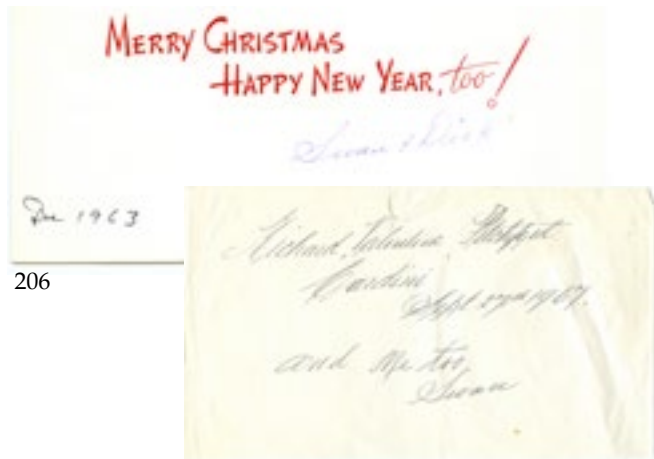 MERRY CHRISTMAS
HAPPY NEW YEAR, too!
Swan & Dick
Dec 1963
206
Richard, Valentine, Pitchford
Cardini
Sept 1967.
and me too,
Swan